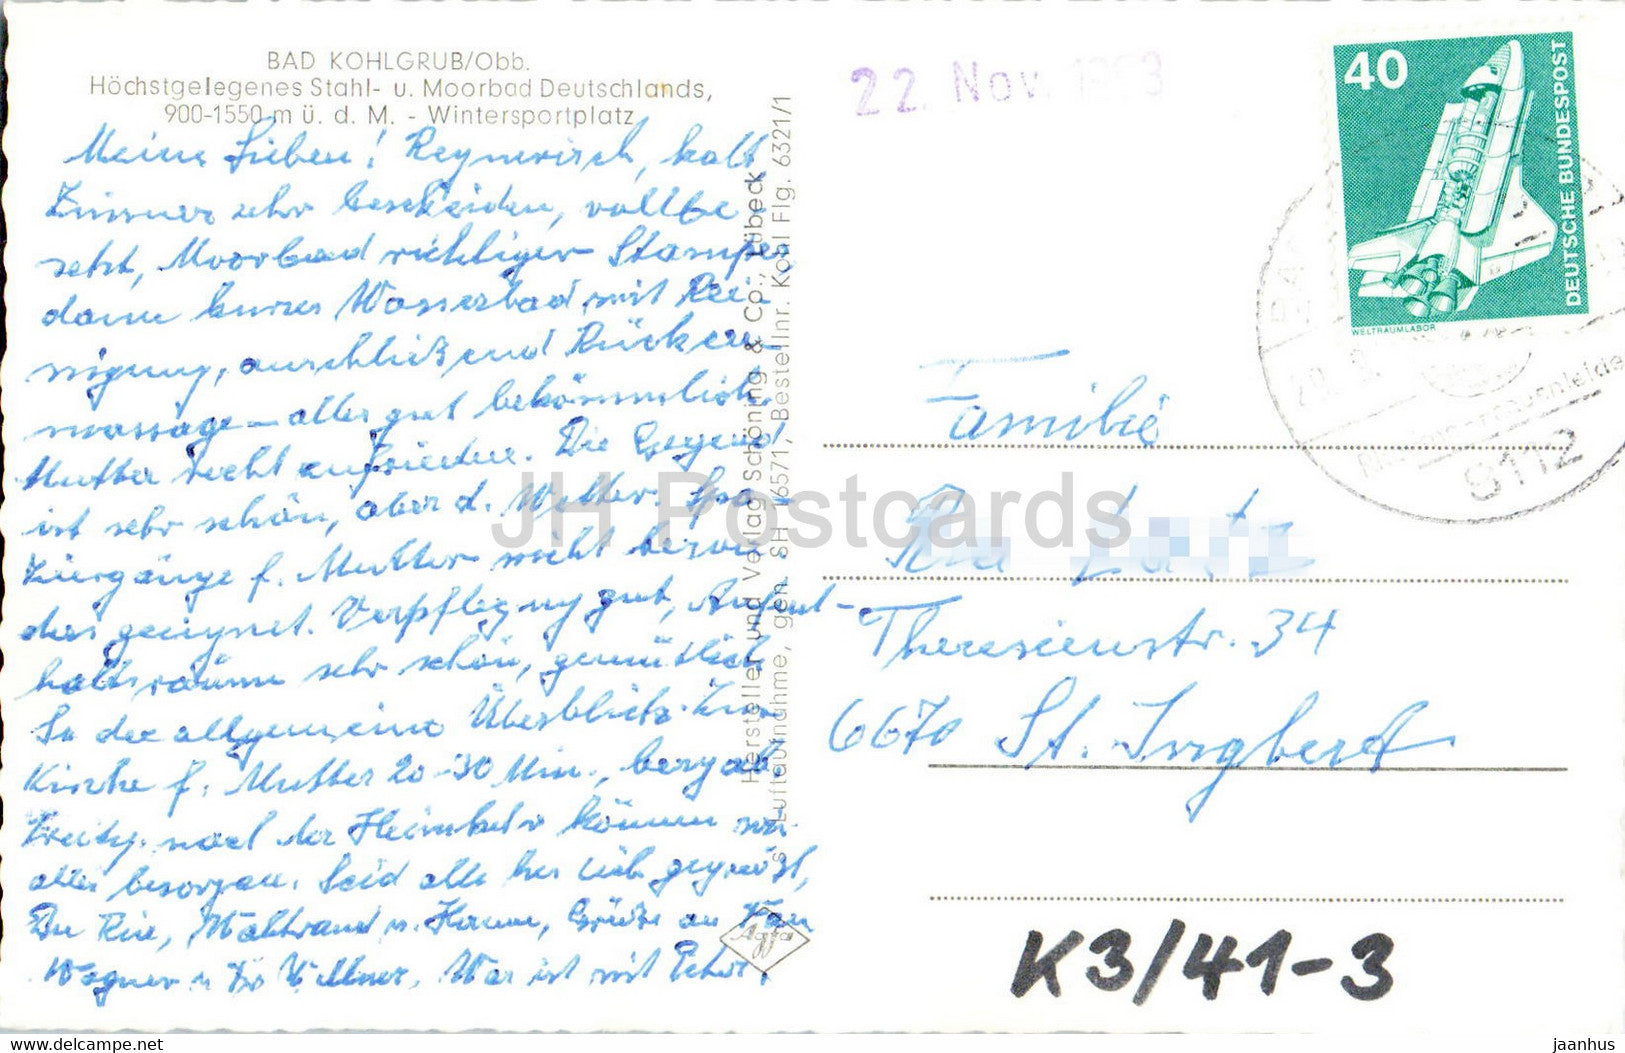 BAD KOHLGRUB/Obb.
Höchstgelegenes Stahl- u. Moorbad Deutschlands,
900-1550 m ü. d. M. - Wintersportplatz
Meine Lieben! Regnerisch, kalt
Zimmer sehr bescheiden, vollbe-
setzt, Moorbad richtiger Stamper
dann kurzes Wasserbad mit Rei-
nigung, anschließend Rücken-
massage – alles gut bekömmlich.
Mutter recht zufrieden. Die Gegend
ist sehr schön, aber d. Wetter. Spa-
ziergänge f. Mutter nicht beson-
ders geeignet. Verpflegung gut, Aufent-
haltsräume sehr schön, gemütlich
In der allgemeine Überblick. Zur
Kirche f. Mutter 20-30 Min., bergab
nach der Heimkehr können wir
alles besorgen. Seid alle herzlich gegrüßt,
Du Ria, u. Grüße an
Wagner u. Was ist mit Peter?
Hersteller und Verlag Schöning & Co., Lübeck
Luftaufnahme, gen. SH 16571, Bestellnr. Kohl Flg. 6321/1
Agfa
22. Nov. 1983
40
DEUTSCHE BUNDESPOST
WELTRAUMLABOR
8112
Familie
Theresienstr. 34
6670 St. Ingbert
K3/41-3
JH Postcards
delcampe.net
jaanhus